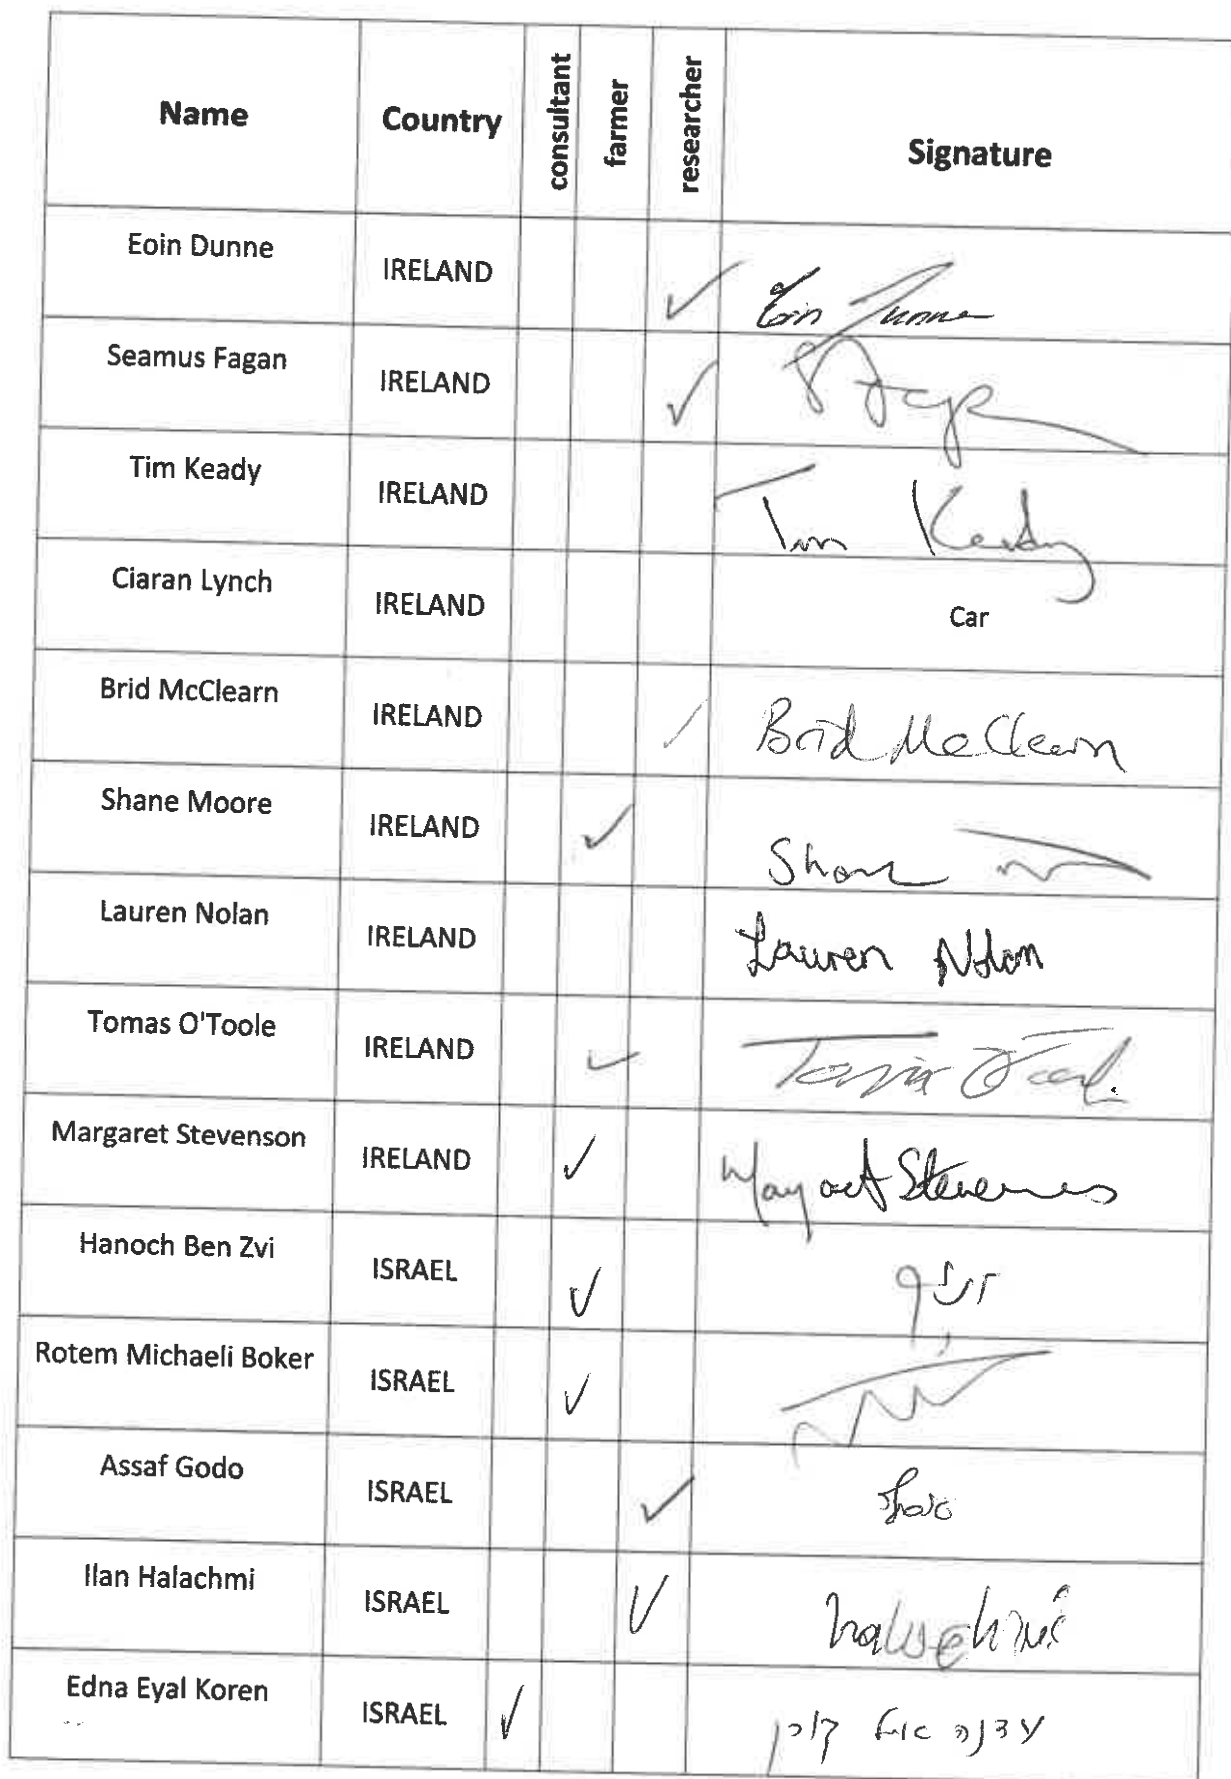 Name Country consultant farmer researcher Signature
Eoin Dunne IRELAND ✓ Eoin Dunne
Seamus Fagan IRELAND ✓
Tim Keady IRELAND Tim Keady
Ciaran Lynch IRELAND Car
Brid McClearn IRELAND ✓ Brid McClearn
Shane Moore IRELAND ✓ Shane
Lauren Nolan IRELAND Lauren Nolan
Tomas O'Toole IRELAND ✓
Margaret Stevenson IRELAND ✓ Margaret Stevenson
Hanoch Ben Zvi ISRAEL ✓
Rotem Michaeli Boker ISRAEL ✓
Assaf Godo ISRAEL ✓
Ilan Halachmi ISRAEL ✓ halachmi
Edna Eyal Koren ISRAEL ✓ עדנה איל קורן